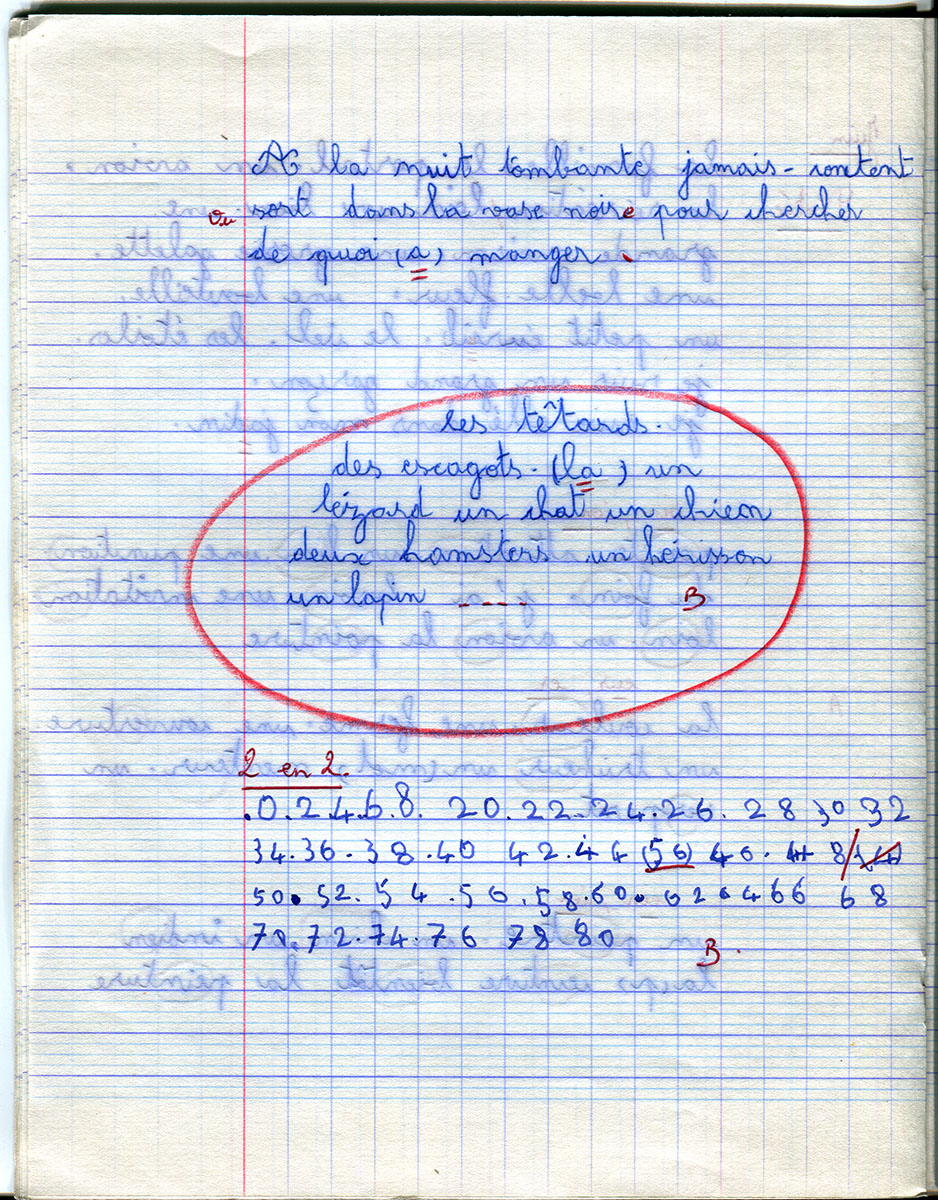 A la nuit tombante jamais-content
Vu sort dans la vase noire pour chercher
de quoi (a) manger.
les têtards.
des escagots. (la) un
lézard un chat un chien
deux hamsters un hérisson
un lapin ---- B
2 en 2.
.0.2.4.6.8. 20.22.24.26.28 30 32
34.36.38.40 42.44 (56) 46. 4 8/
50.52.54.56.58.60.620466 68
70.72.74.76 78 80 B.